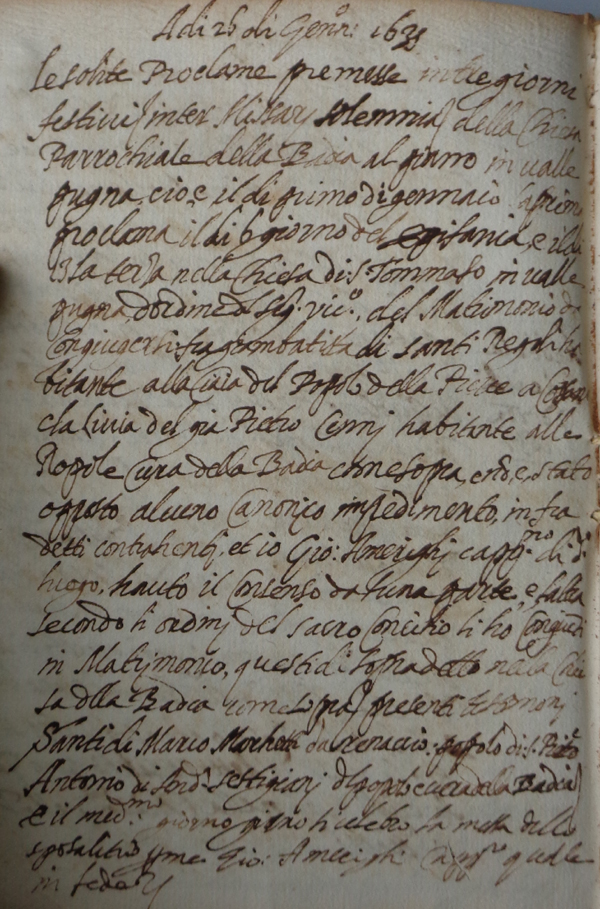 Adi 26 di Genn.º 1635
le solite Proclame premesse in tre giorni
festivi inter Missarj solemnia della Chiesa
Parrochiale della Badia al piano in valle
pugna, cioè il dì primo di gennaio la prima
proclama il dì 6 giorno del epifania, e il dì
13 la terza nella Chiesa di S. Tommaso in valle
pugna, d'ordine del Sig. Vic.º, del Matrimonio da
congiugersi fra gombatita di santi Regoli ha
bitante alla del Popolo della Pieve a
cla Livia del gia Pietro Cennj habitante alle
Ropole Cura della Badia come sopra, e non è stato
opposto alcuno Canonico impedimento, infra
detti contrahentj, et io Gio: Amerighj capp.no di d.º
luogo, hauto il consenso da l'una parte, e l'altra
secondo li ordinj del sacro Concilio li ho Congiuti
in Matrimonio, questo dì sopra detto nella Chie
sa della Badia come sopra presenti testimonj
Santi di Marco Marchetti da popolo di S.
Antonio di Sestigianj del popolo e cura della Badia
e il med.mo giorno li celebro la messa dello
sposalitio Gio: Amerighi Capp.no quale
in fede